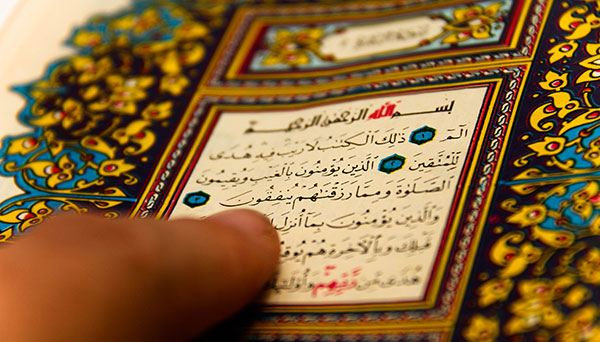 بِسْمِ اللَّهِ الرَّحْمَٰنِ الرَّحِيمِ
الٓمٓ ١ ذَٰلِكَ الْكِتَٰبُ لَا رَيْبَ فِيهِ هُدًى
لِلْمُتَّقِينَ ٢ الَّذِينَ يُؤْمِنُونَ بِالْغَيْبِ وَيُقِيمُونَ
الصَّلَوٰةَ وَمِمَّا رَزَقْنَٰهُمْ يُنْفِقُونَ ٣
وَالَّذِينَ يُؤْمِنُونَ بِمَا أُنْزِلَ
قَبْلِكَ وَبِالْآخِرَةِ هُمْ
هُدًى مِنْ رَبِّهِمْ